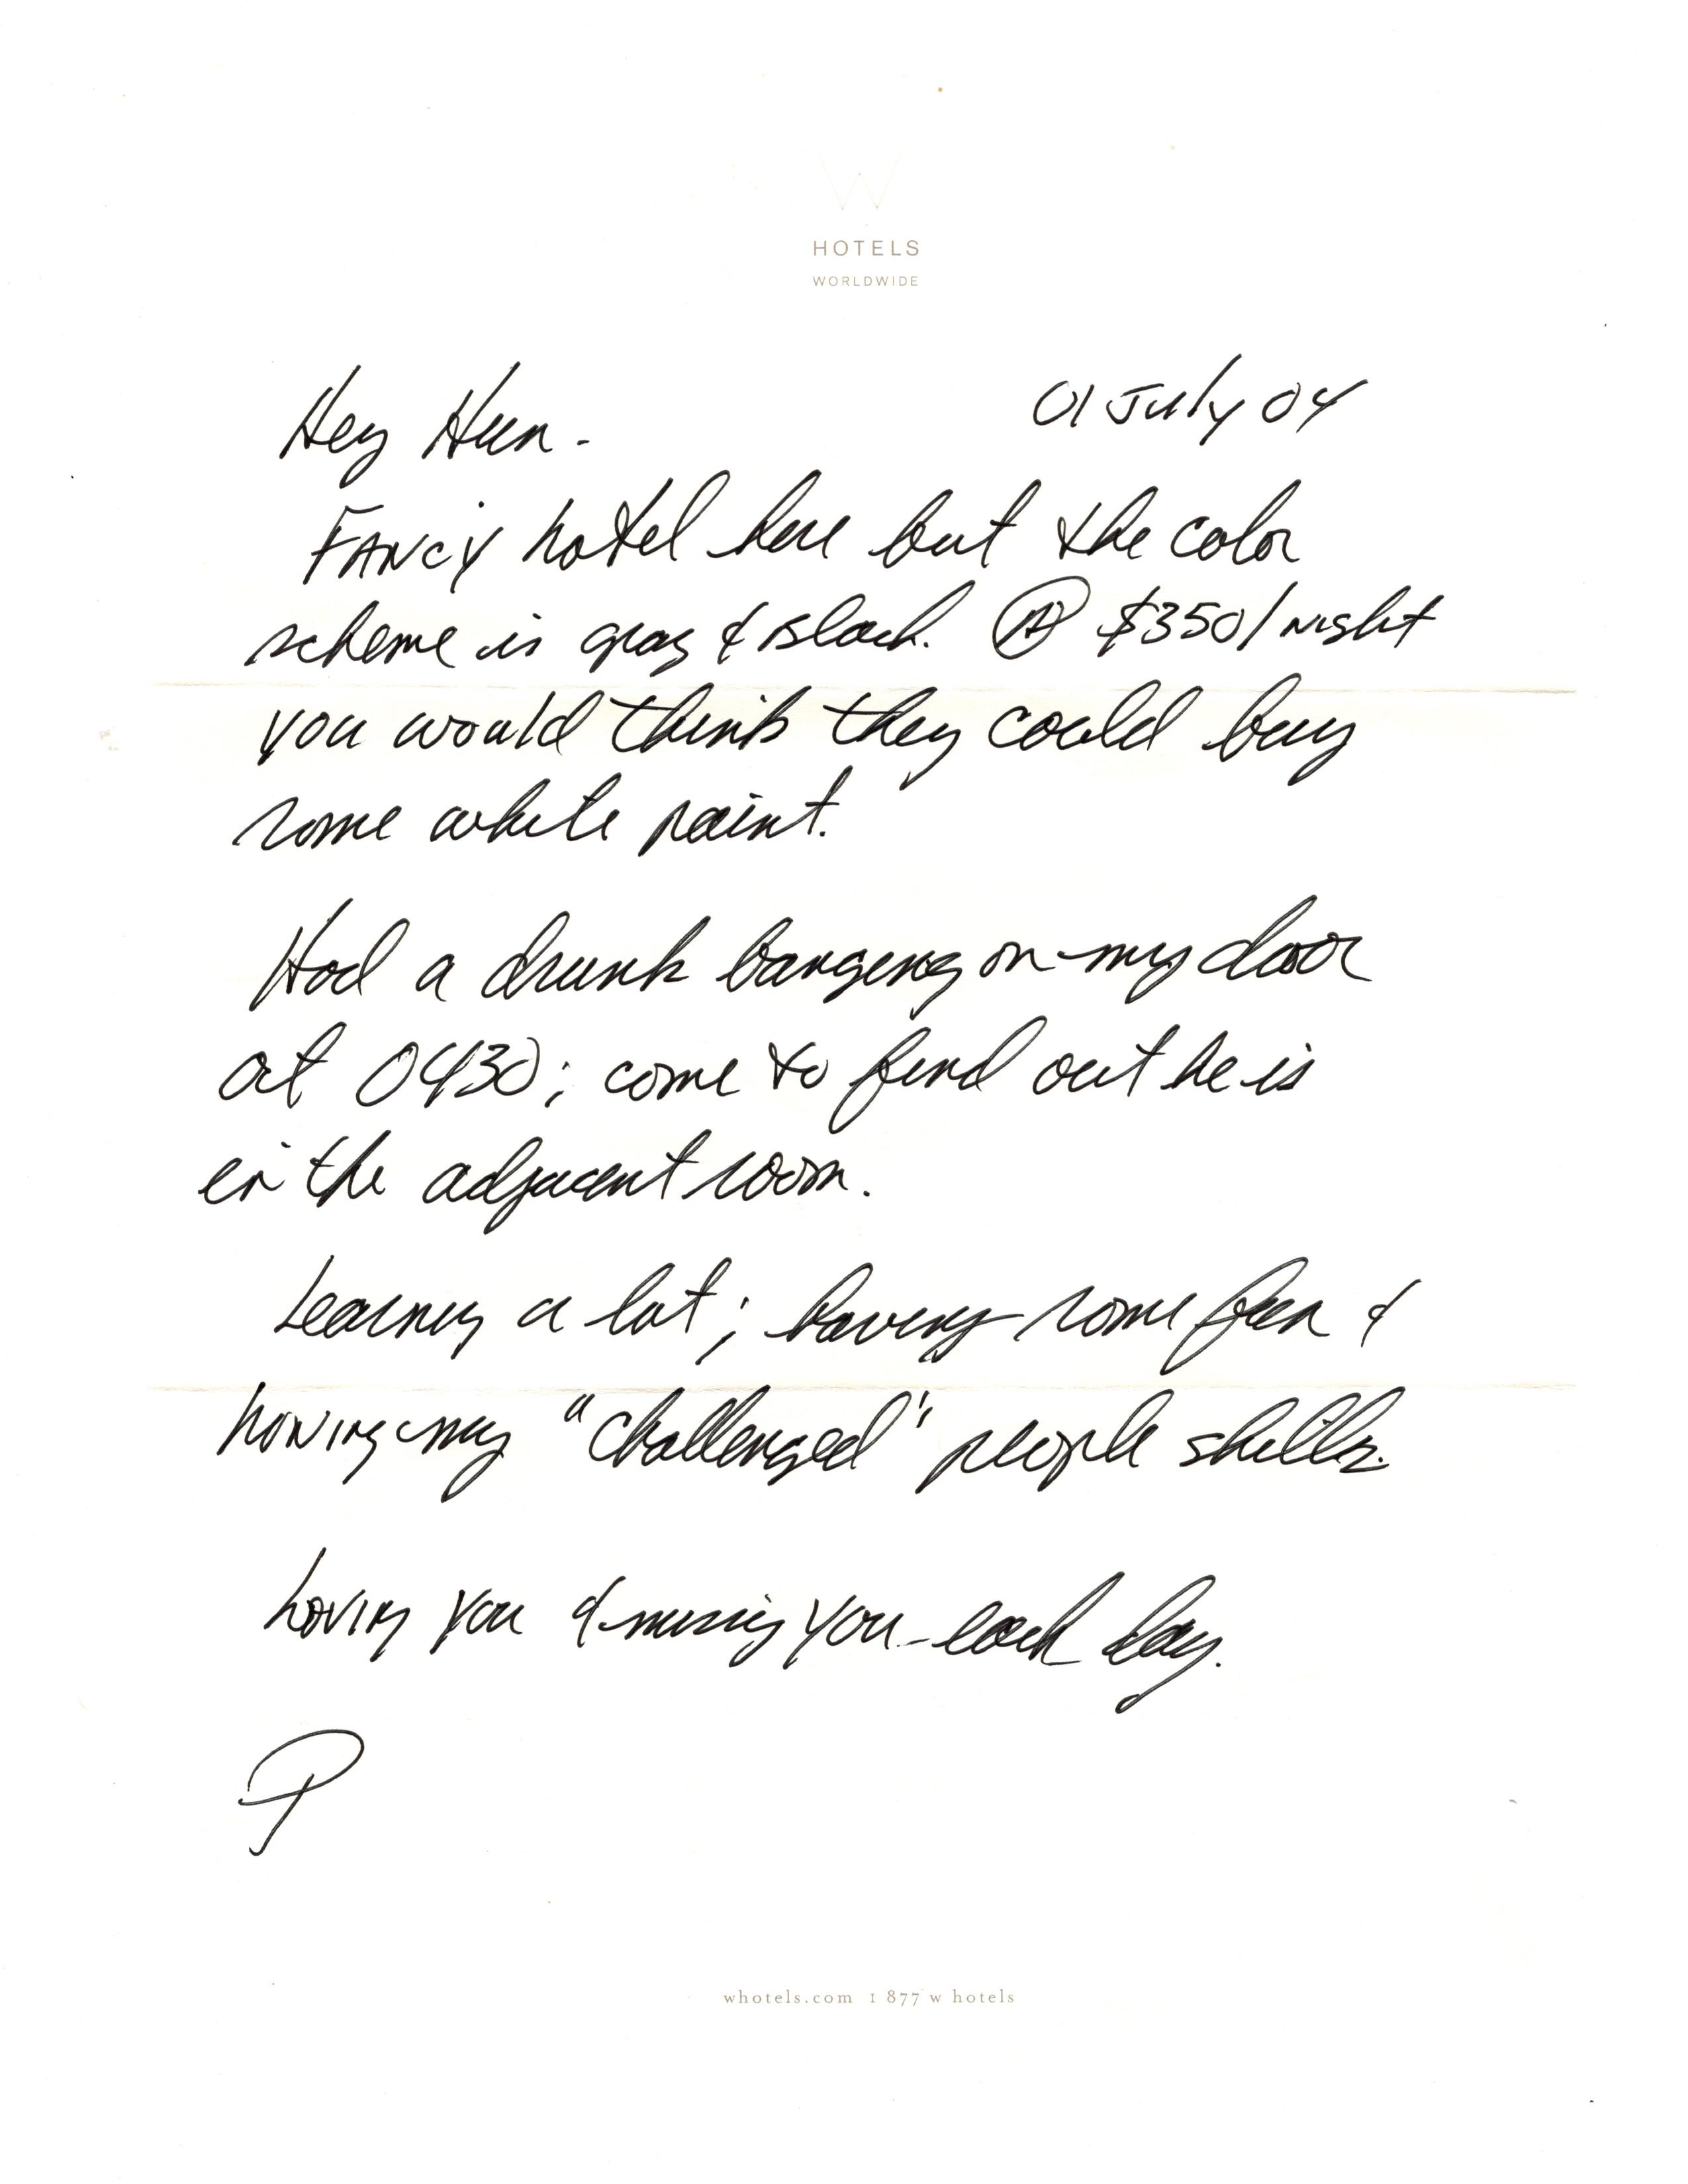 W
HOTELS
WORLDWIDE
01 July 04
Hey Hun -
FANCY hotel here but the color
scheme is gray & black. @ $350/night
you would think they could buy
some white paint.
Had a drunk banging on my door
at 0430; come to find out he is
in the adjacent room.
Learning a lot; having some fun &
honing my "challenged" people skills.
Loving you & missing you - each day.
P
whotels.com 1 877 w hotels